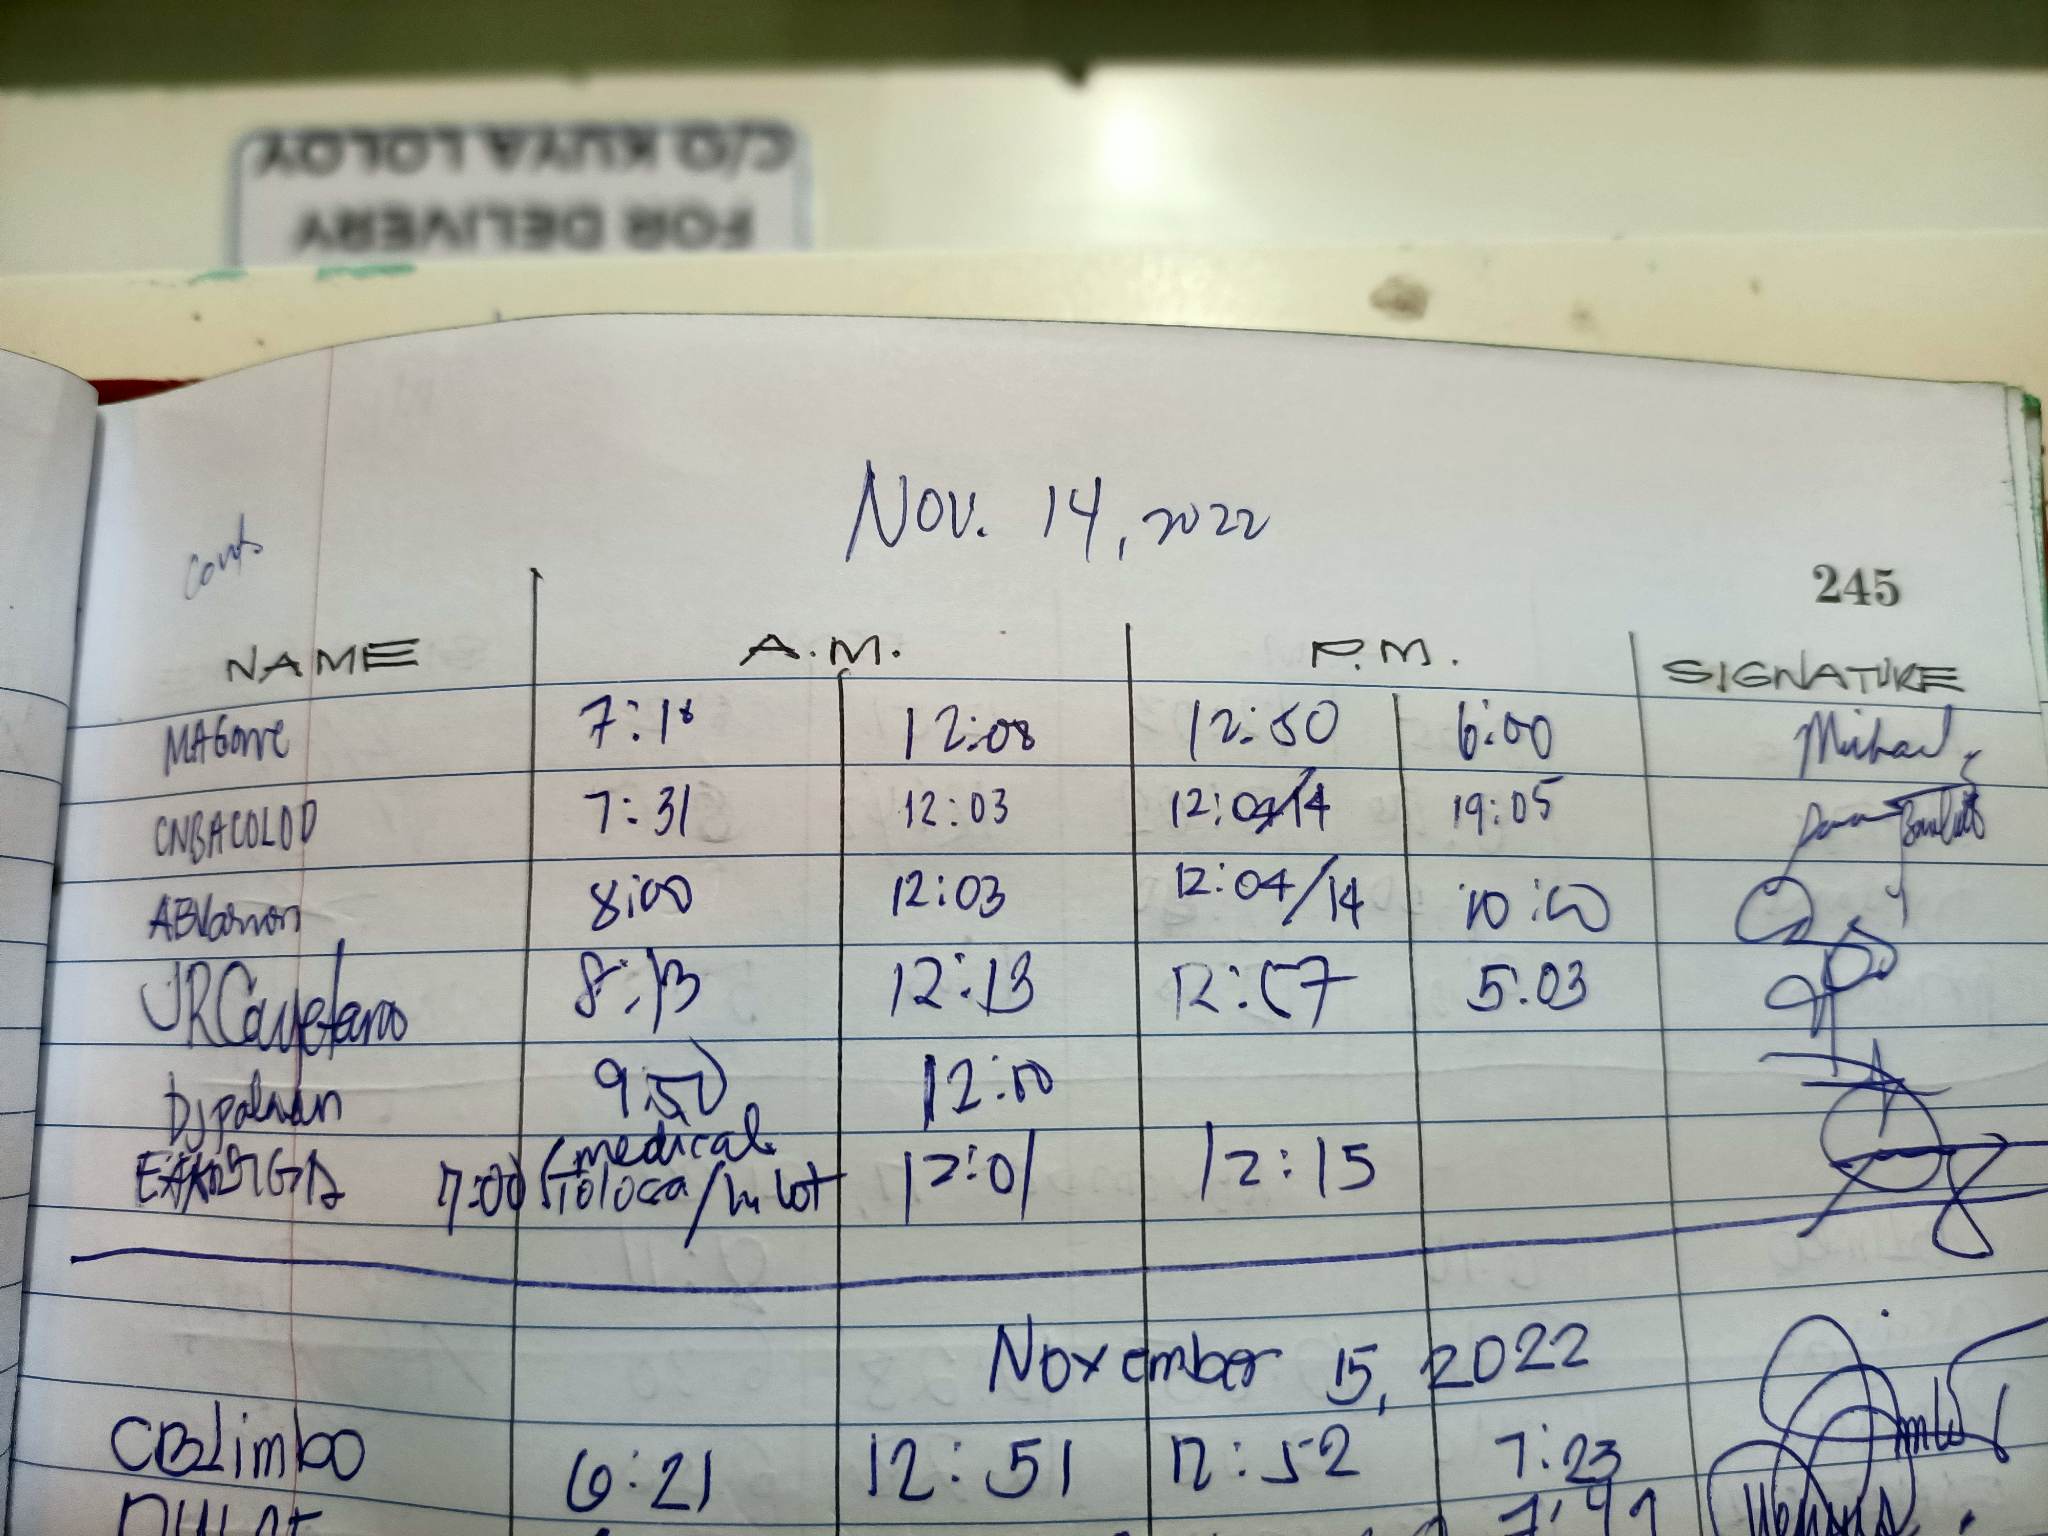 C/O KUYA LOLOY
FOR DELIVERY
Nov. 14, 2022
245
NAME A.M. P.M. SIGNATURE
7:18 12:08 12:50 6:00 Michael
CNBACOLOD 7:31 12:03 12:04/14 19:05
8:00 12:03 12:04/14 10:00
JRCayetano 8:13 12:13 12:57 5:03
DJpalwan 9:50 12:00
7:00 (medical 12:01 12:15
Tolosa/
November 15, 2022
CBLimbo 6:21 12:51 12:52 7:23